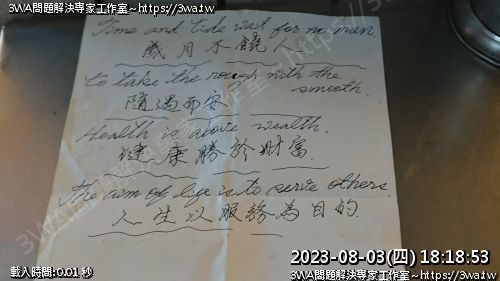 3WA問題解決專家工作室~https://3wa.tw
Time and tide wait for no man.
歲月不饒人
to take the rough with the smooth.
隨遇而安
Health is above wealth.
健康勝於財富.
The aim of life is to serve others.
人生以服務為目的.
2023-08-03(四) 18:18:53
載入時間:0.01 秒
3WA問題解決專家工作室~https://3wa.tw